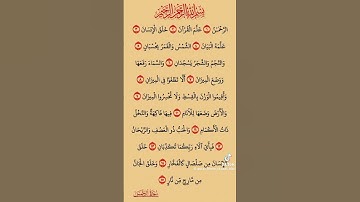 بِسْمِ اللَّهِ الرَّحْمَٰنِ الرَّحِيمِ
الرَّحْمَٰنُ ۝ عَلَّمَ الْقُرْآنَ ۝ خَلَقَ الْإِنْسَانَ ۝
عَلَّمَهُ الْبَيَانَ ۝ الشَّمْسُ وَالْقَمَرُ بِحُسْبَانٍ ۝
وَالنَّجْمُ وَالشَّجَرُ يَسْجُدَانِ ۝ وَالسَّمَاءَ رَفَعَهَا
وَوَضَعَ الْمِيزَانَ ۝ أَلَّا تَطْغَوْا فِي الْمِيزَانِ ۝
وَأَقِيمُوا الْوَزْنَ بِالْقِسْطِ وَلَا تُخْسِرُوا الْمِيزَانَ ۝
وَالْأَرْضَ وَضَعَهَا لِلْأَنَامِ ۝ فِيهَا فَاكِهَةٌ وَالنَّخْلُ
ذَاتُ الْأَكْمَامِ ۝ وَالْحَبُّ ذُو الْعَصْفِ وَالرَّيْحَانُ
۝ فَبِأَيِّ آلَاءِ رَبِّكُمَا تُكَذِّبَانِ ۝ خَلَقَ
الْإِنْسَانَ مِن صَلْصَالٍ كَالْفَخَّارِ ۝ وَخَلَقَ الْجَانَّ
مِن مَّارِجٍ مِّن نَّارٍ ۝